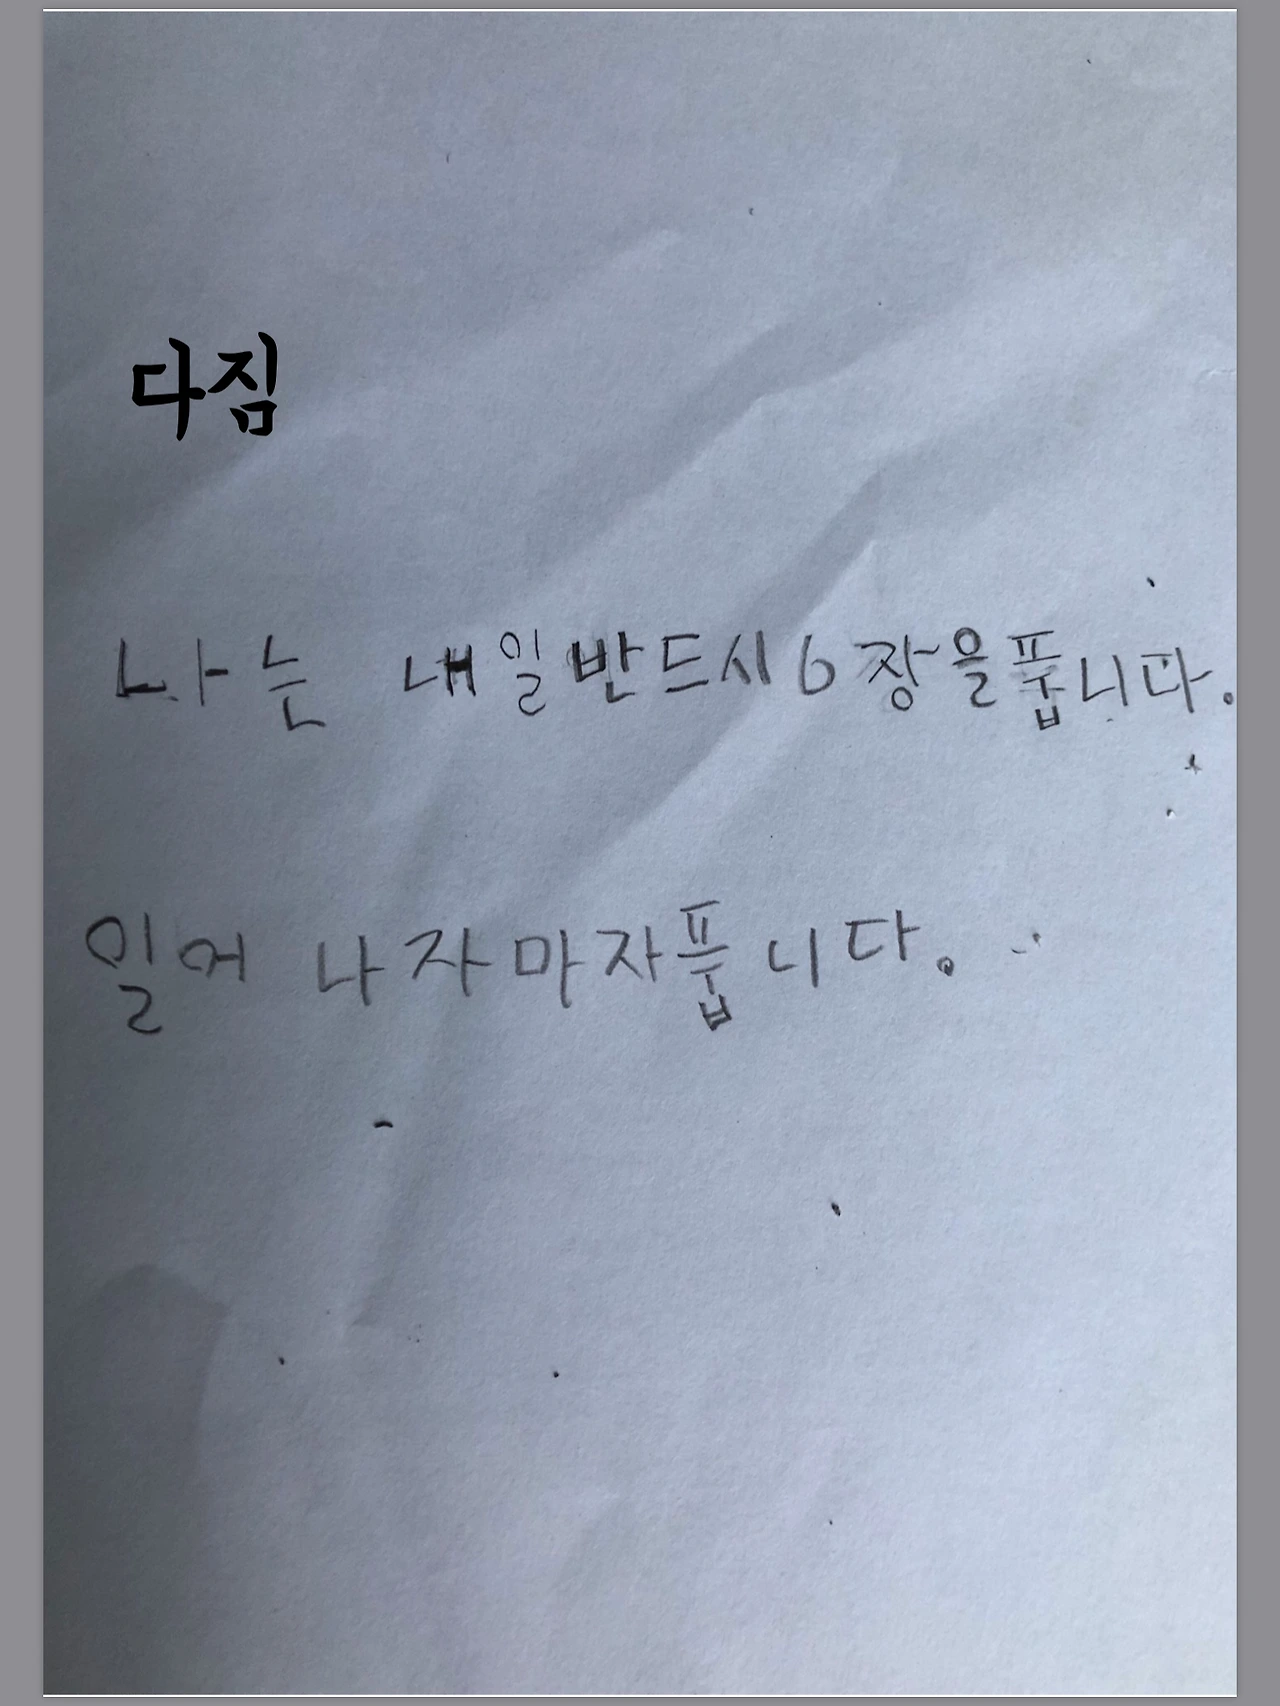 다짐
나는 내일반드시6장을풉니다.
일어 나자마자풉니다.